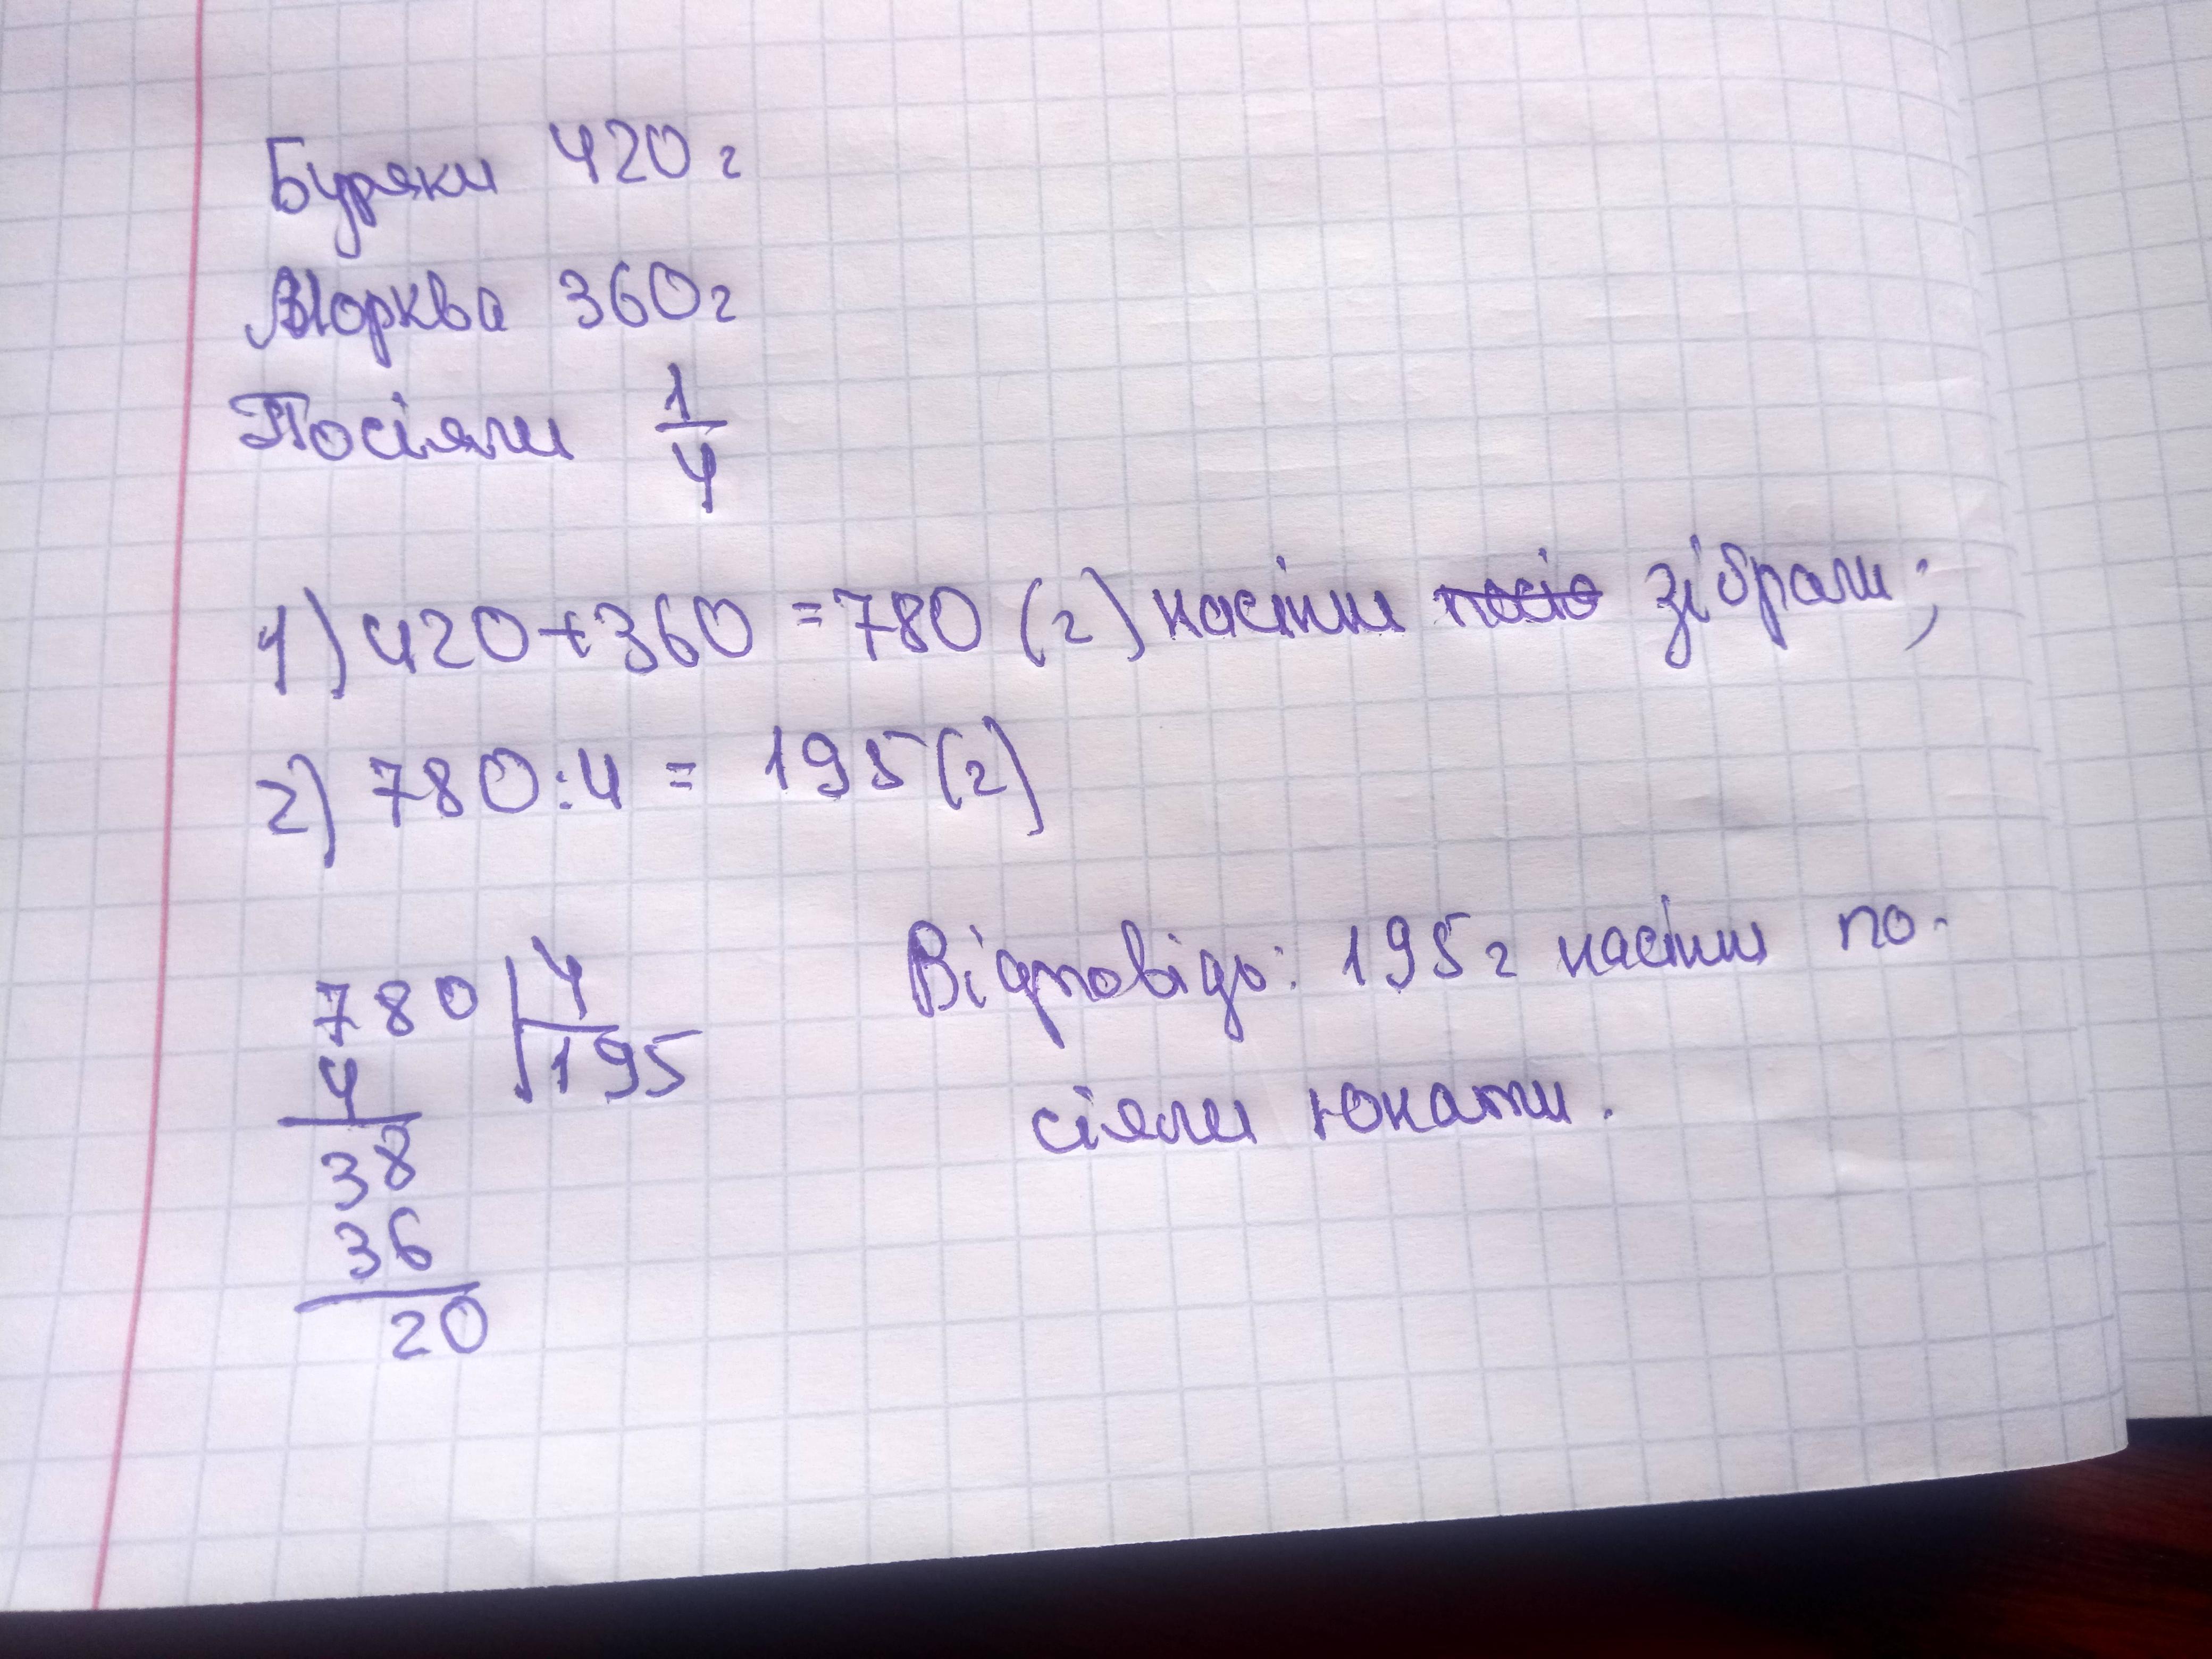 Буряки 420 г
Морква 360 г
Посіяли 1/4
1) 420 + 360 = 780 (г) насіння зібрали;
2) 780 : 4 = 195 (г)
780 | 4
4 | 195
38
36
20
Відповідь: 195 г насіння по-
сіяли юнати.